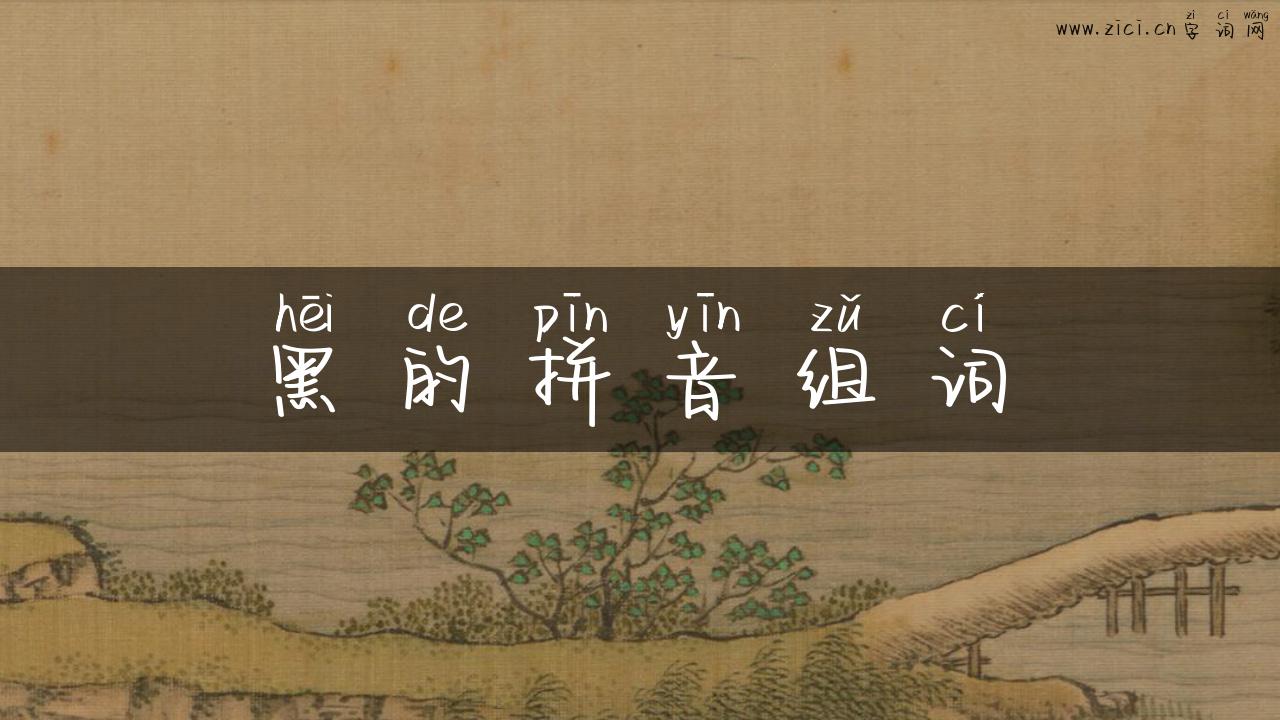 zì cí wǎng
www.zici.cn 字 词 网
hēi de pīn yīn zǔ cí
黑 的 拼 音 组 词